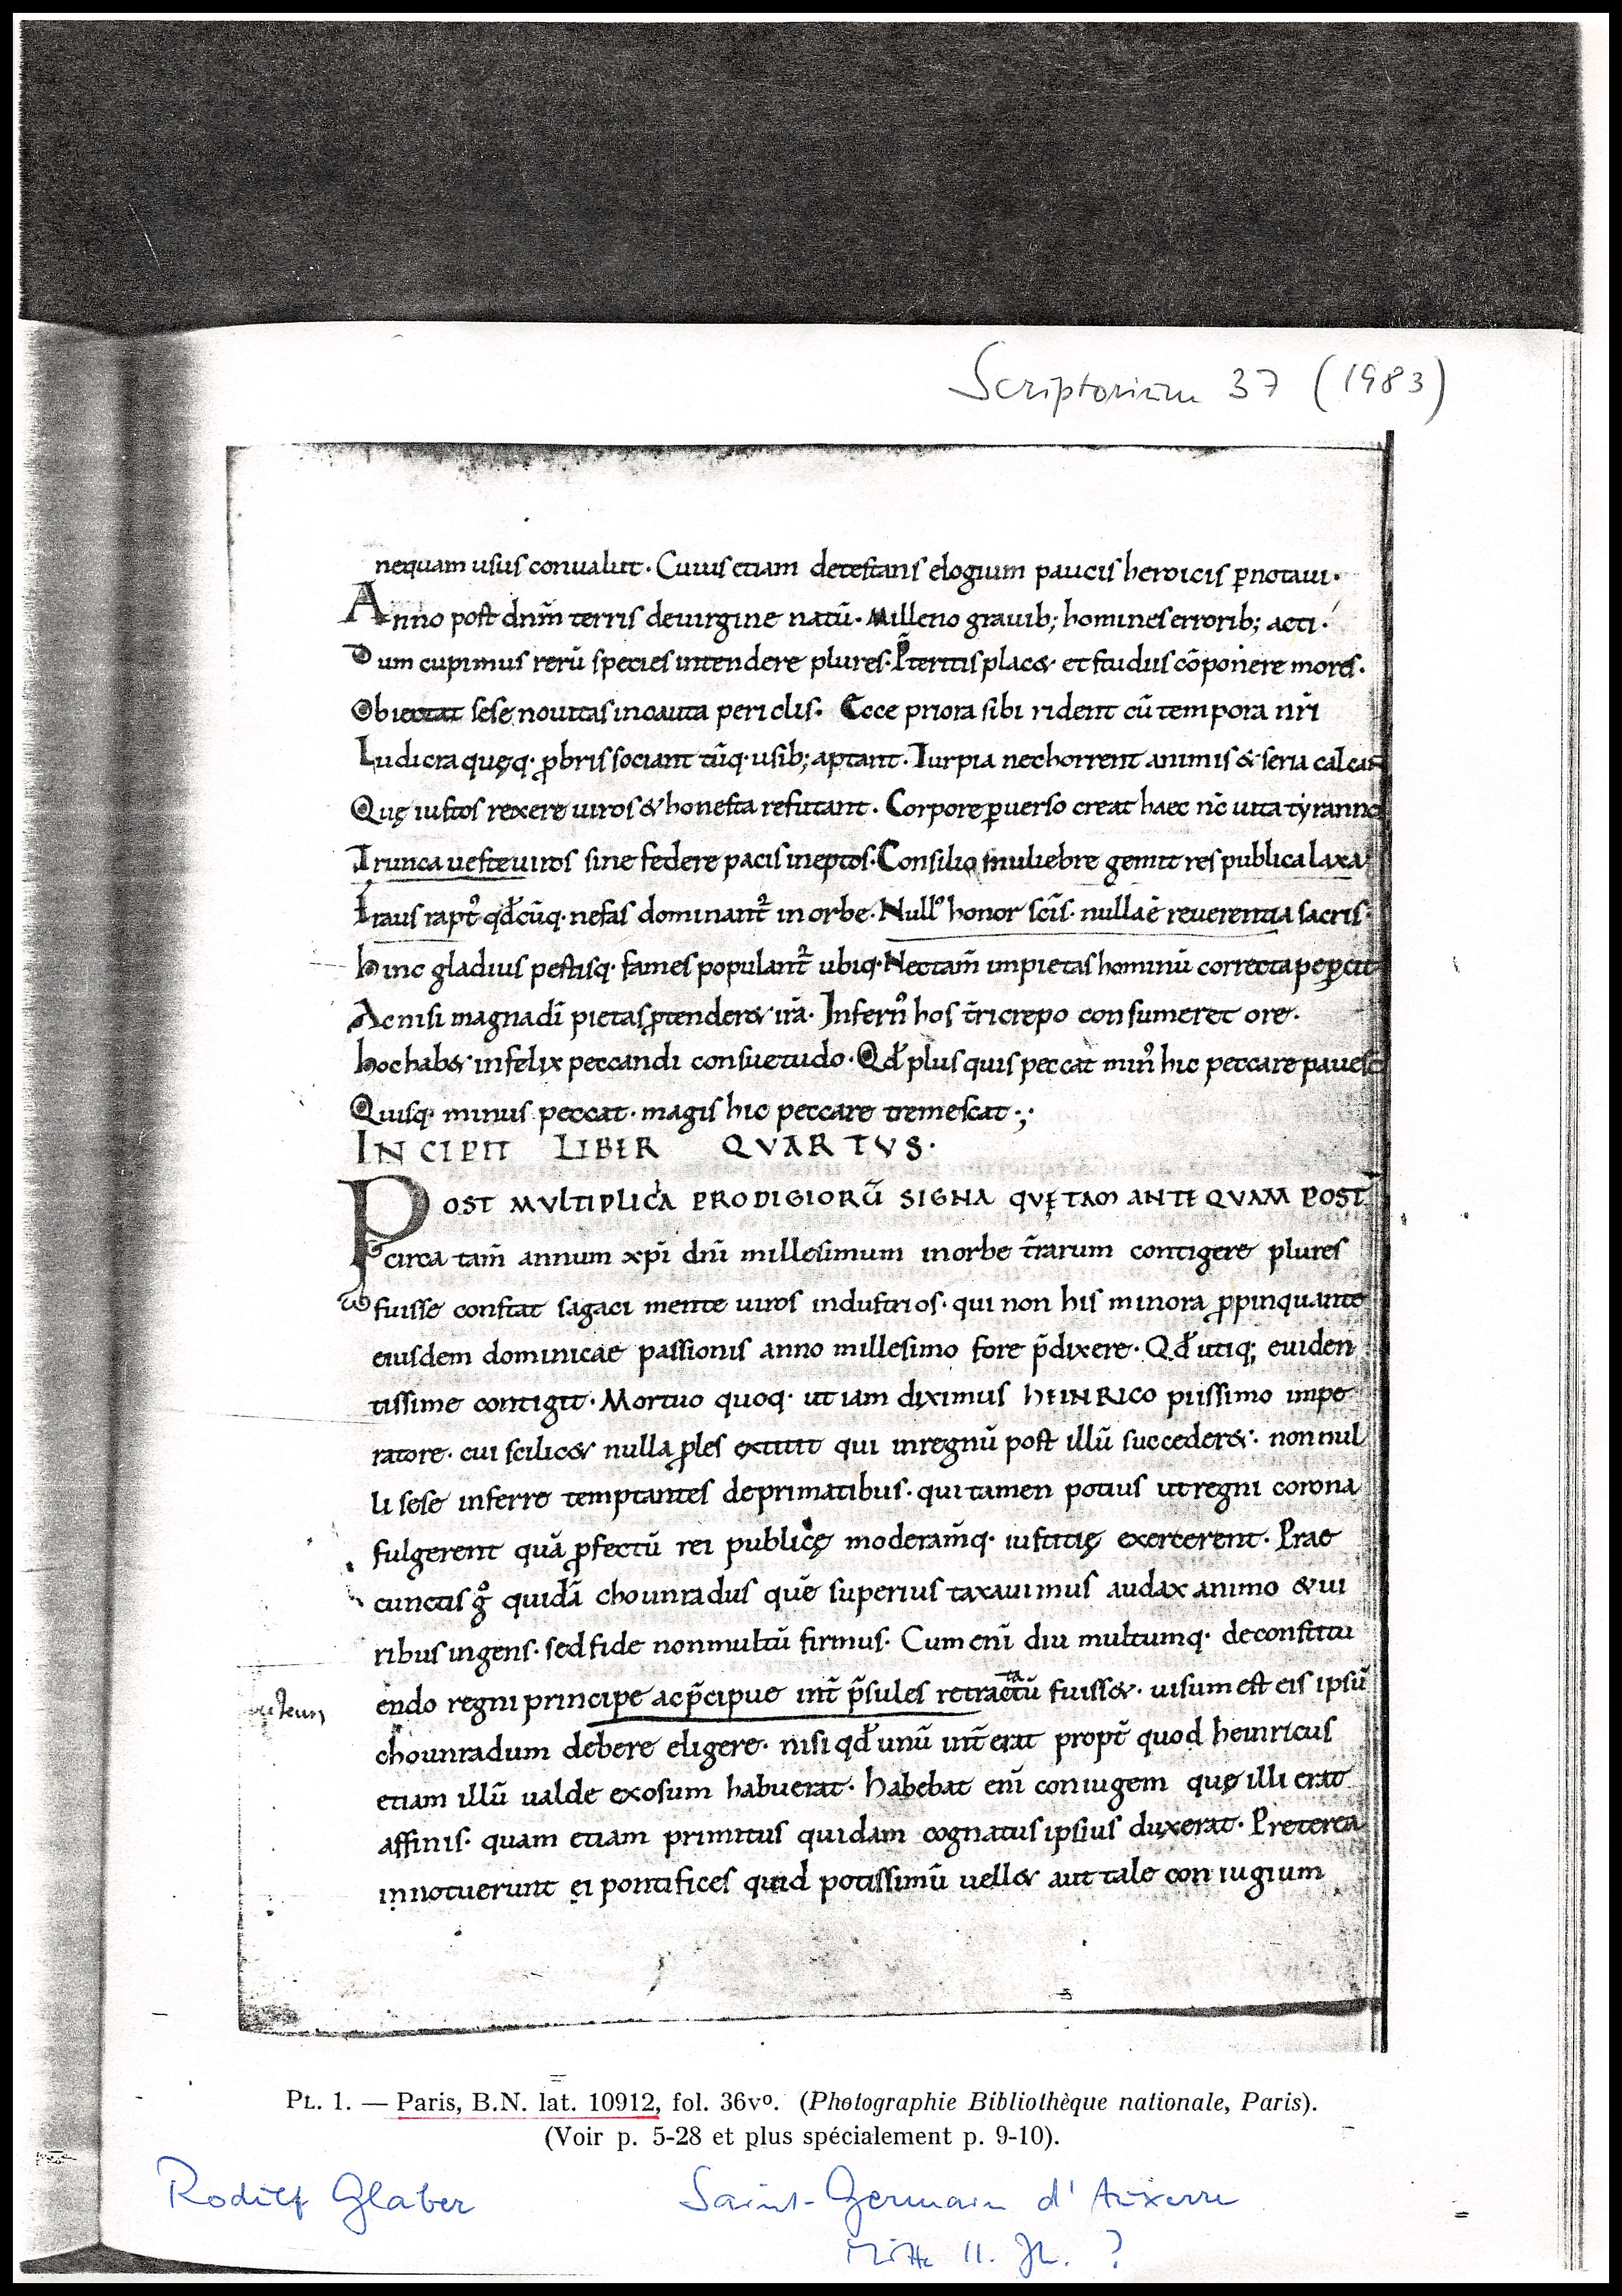 Scriptorium 37 (1983)
nequam usus conualuit. Cuius etiam detestans elogium paucis heroicis p̄notaui.
Anno post dnm̄ terris deuirgine natū. Milleno grauib; homines errorib; acti.
Dum cupimus rerū species intendere plures. P̄teritis plac& et studiis cōponere mores.
Obiectat sese nouitas incauta periclis. Ecce priora sibi rident cū tempora nr̄i
Ludicra quęq· ꝓbris sociant tūq· usib; aptant. Turpia nec horrent animis & seria calcan̄t
Quę iustos rexere uiros & honesta refutant. Corpore ꝑuerso creat haec nc̄ uita tyranno
Trunca ueste uiros sine federe pacis ineptos. Consilio muliebre gemit res publica laxa
Fraus rapt᷑ qd̄cūq· nefas dominant᷑ in orbe. Null᾽ honor sc̄is· nulla ē reuerentia sacris·
Hinc gladius pestisq· fames populant᷑ ubiq· Nec tam̄ impietas hominū correcta peꝑcit
Ac nisi magna dī pietas ꝓtender& irā. Infern᾽ hos t̄ricrepo consumeret ore.
Hoc hab& infelix peccandi consuetudo. Qd̄ plus quis peccat min᾽ hic peccare pauesc
Quisq· minus peccat· magis hic peccare tremescat·;
INCIPIT LIBER QVARTVS.
POST MVLTIPLICA PRODIGIORŪ SIGNA QVĘ TAM ANTE QVAM POST
circa tam̄ annum xpī dnī millesimum in orbe t̄rarum contigere plures
fuisse constat sagaci mente uiros industrios· qui non his minora ꝓpinquante
eiusdem dominicae passionis anno millesimo fore p̄dixere· Qd̄ utiq; euiden
tissime contigit. Mortuo quoq· ut iam diximus HEINRICO piissimo impe
ratore· cui scilic& nulla ꝓles extitit qui in regnū post illū succeder&· nonnul
li sese inferre temptantes de primatibus· qui tamen potius ut regni corona
fulgerent quā ꝓfectū rei publicę moderam̄q· iustitię exercerent. Prae
cunctis g᾽ quidā chounradus quē superius taxauimus audax animo & ui
ribus ingens· sed fide non multū firmus. Cum enī diu multumq· de constitu
endo regni principe ac p̄cipue int̄ p̄sules retracta tū fuiss&· uisum est eis ipsū
chounradum debere eligere· nisi qd̄ unū int̄erat propt̄ quod heinricus
etiam illū ualde exosum habuerat. Habebat enī coniugem quę illi erat
affinis· quam etiam primitus quidam cognatus ipsius duxerat. Preterea
innotuerunt ei pontifices quid potissimū uell& aut tale coniugium
PL. 1. — Paris, B.N. lat. 10912, fol. 36vº. (Photographie Bibliothèque nationale, Paris).
(Voir p. 5-28 et plus spécialement p. 9-10).
Rodulf Glaber Saint-Germain d'Auxerre
Mitte 11. Jh. ?